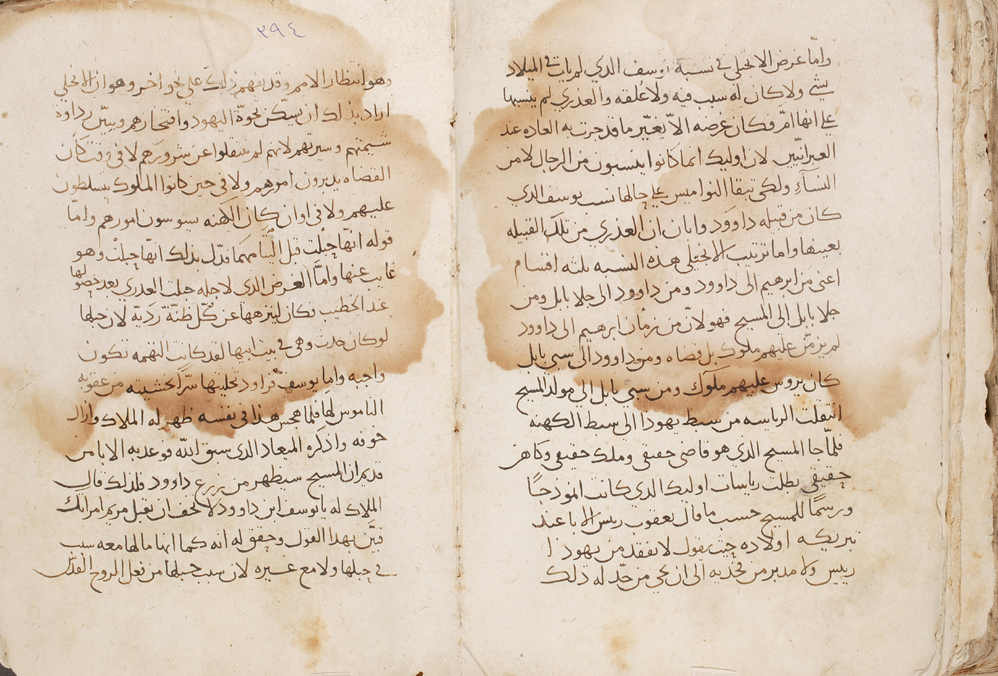 واما غرض الانجيلي في نسبة يوسف الذي لم يات في الميلاد
بشي ولا كان له سبب فيه ولا علقه والعذري لم ينسبها
على انها ام فكان غرضه الا يغير ما قد جرت به العاده عند
العبرانيين لان اوليك انما كانوا ينسبون من الرجال لا من
النسآء ولكي تبقا النواميس على حالها نسب يوسف الذي
كان من قبيله داوود وابان ان العذري من تلك القبيله
بعينها واما ترتيب الانجيلي هذه النسبه ثلثه اقسام
اعني من ابرهيم الى داوود ومن داوود الى جلا بابل ومن
جلا بابل الى المسيح فهو لان من زمان ابرهيم الى داوود
لم يرؤس عليهم ملوك بل قضاه ومن داوود الى سبي بابل
كان يروس عليهم ملوك ومن سبي بابل الى مولد المسيح
انتقلت الرياسه من سبط يهودا الى سبط الكهنه
فلما جا المسيح الذي هو قاضي حقيقي وملك حقيقي وكاهن
حقيقي بطلت رياسات اوليك الذي كانت انموذجا
ورسما للمسيح حسب ما قال يعقوب ريس الابا عند
تبريكه اولاده حيث يقول لا يفقد من يهودا
رييس ولا مدبر من فخديه الى ان يجي من حد له ذلك
٣٩٤
وهو انتظار الامم وقد يفهم ذلك على نحو اخر وهو ان الانجيلي
اراد بذلك ان يسكن نخوة اليهود وافتخارهم ويبين رداوة
شيمتهم وسيرتهم لانهم لم ينتقلوا عن شرورهم لا في وقت كان
القضاه يدبرون امورهم ولا في حين كانوا الملوك يتسلطون
عليهم ولا في اوان كان الكهنه يسوسون امورهم واما
قوله انها حبلت قبل مهما فدل بذلك انها حبلت وهو
غايب عنها واما الغرض الذي لاجله حبلت العذري بعد حصولها
عند الخطيب فكان لينزهها عن كل ظنة رديه لان حبلها
لو كان حدث وهي في بيت ابيها لقد كانت التهمه تكون
واجبه واما يوسف فراود تخليتها سرا لخشيته من عقوبه
الناموس لها فلما هجس هذا في نفسه ظهر له الملاك وازال
خوفه واذكره الميعاد الذي سبق الله فوعد به الابا من
قديم ان المسيح سيظهر من زرع داوود فلذلك قال
الملاك له يا يوسف ابن داوود لا تخف ان تقبل مريم امراتك
فبين بهذا القول وحقق له انه كما انها ما لها معه سبب
في حبلها ولا مع غيره لان سبب حبلها من فعل الروح القدس